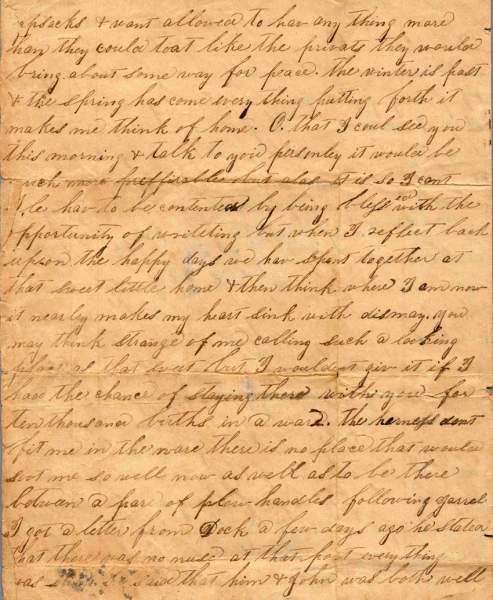 apsacks & want allowed to hav any thing more
than they could toat like the privats they would
bring about some way for peace. the winter is past
& the spring has come every thing putting forth it
makes me think of home. O. that I coul see you
this morning & talk to you personley it would be
much more preffirable but alas it is so I cant
We hav to be contented by being blessed with the
opportunity of writeting but when I reflect back
uppon the happy days we hav spent together at
that sweet little home & then think where I am now
it nearly makes my heart sink with dismay. you
may think strange of me calling such a looking
place as that sweet but I would not giv it if I
had the chance of staying there with you for
ten thousand births in a ward. the herness dont
fit me in the ware there is no place that would
soot me so well now as well as to be there
between a pare of plow handles following
I got a letter from Dock a few days ago he stated
that there was no nuse at that post everything
was said that him & John was both well